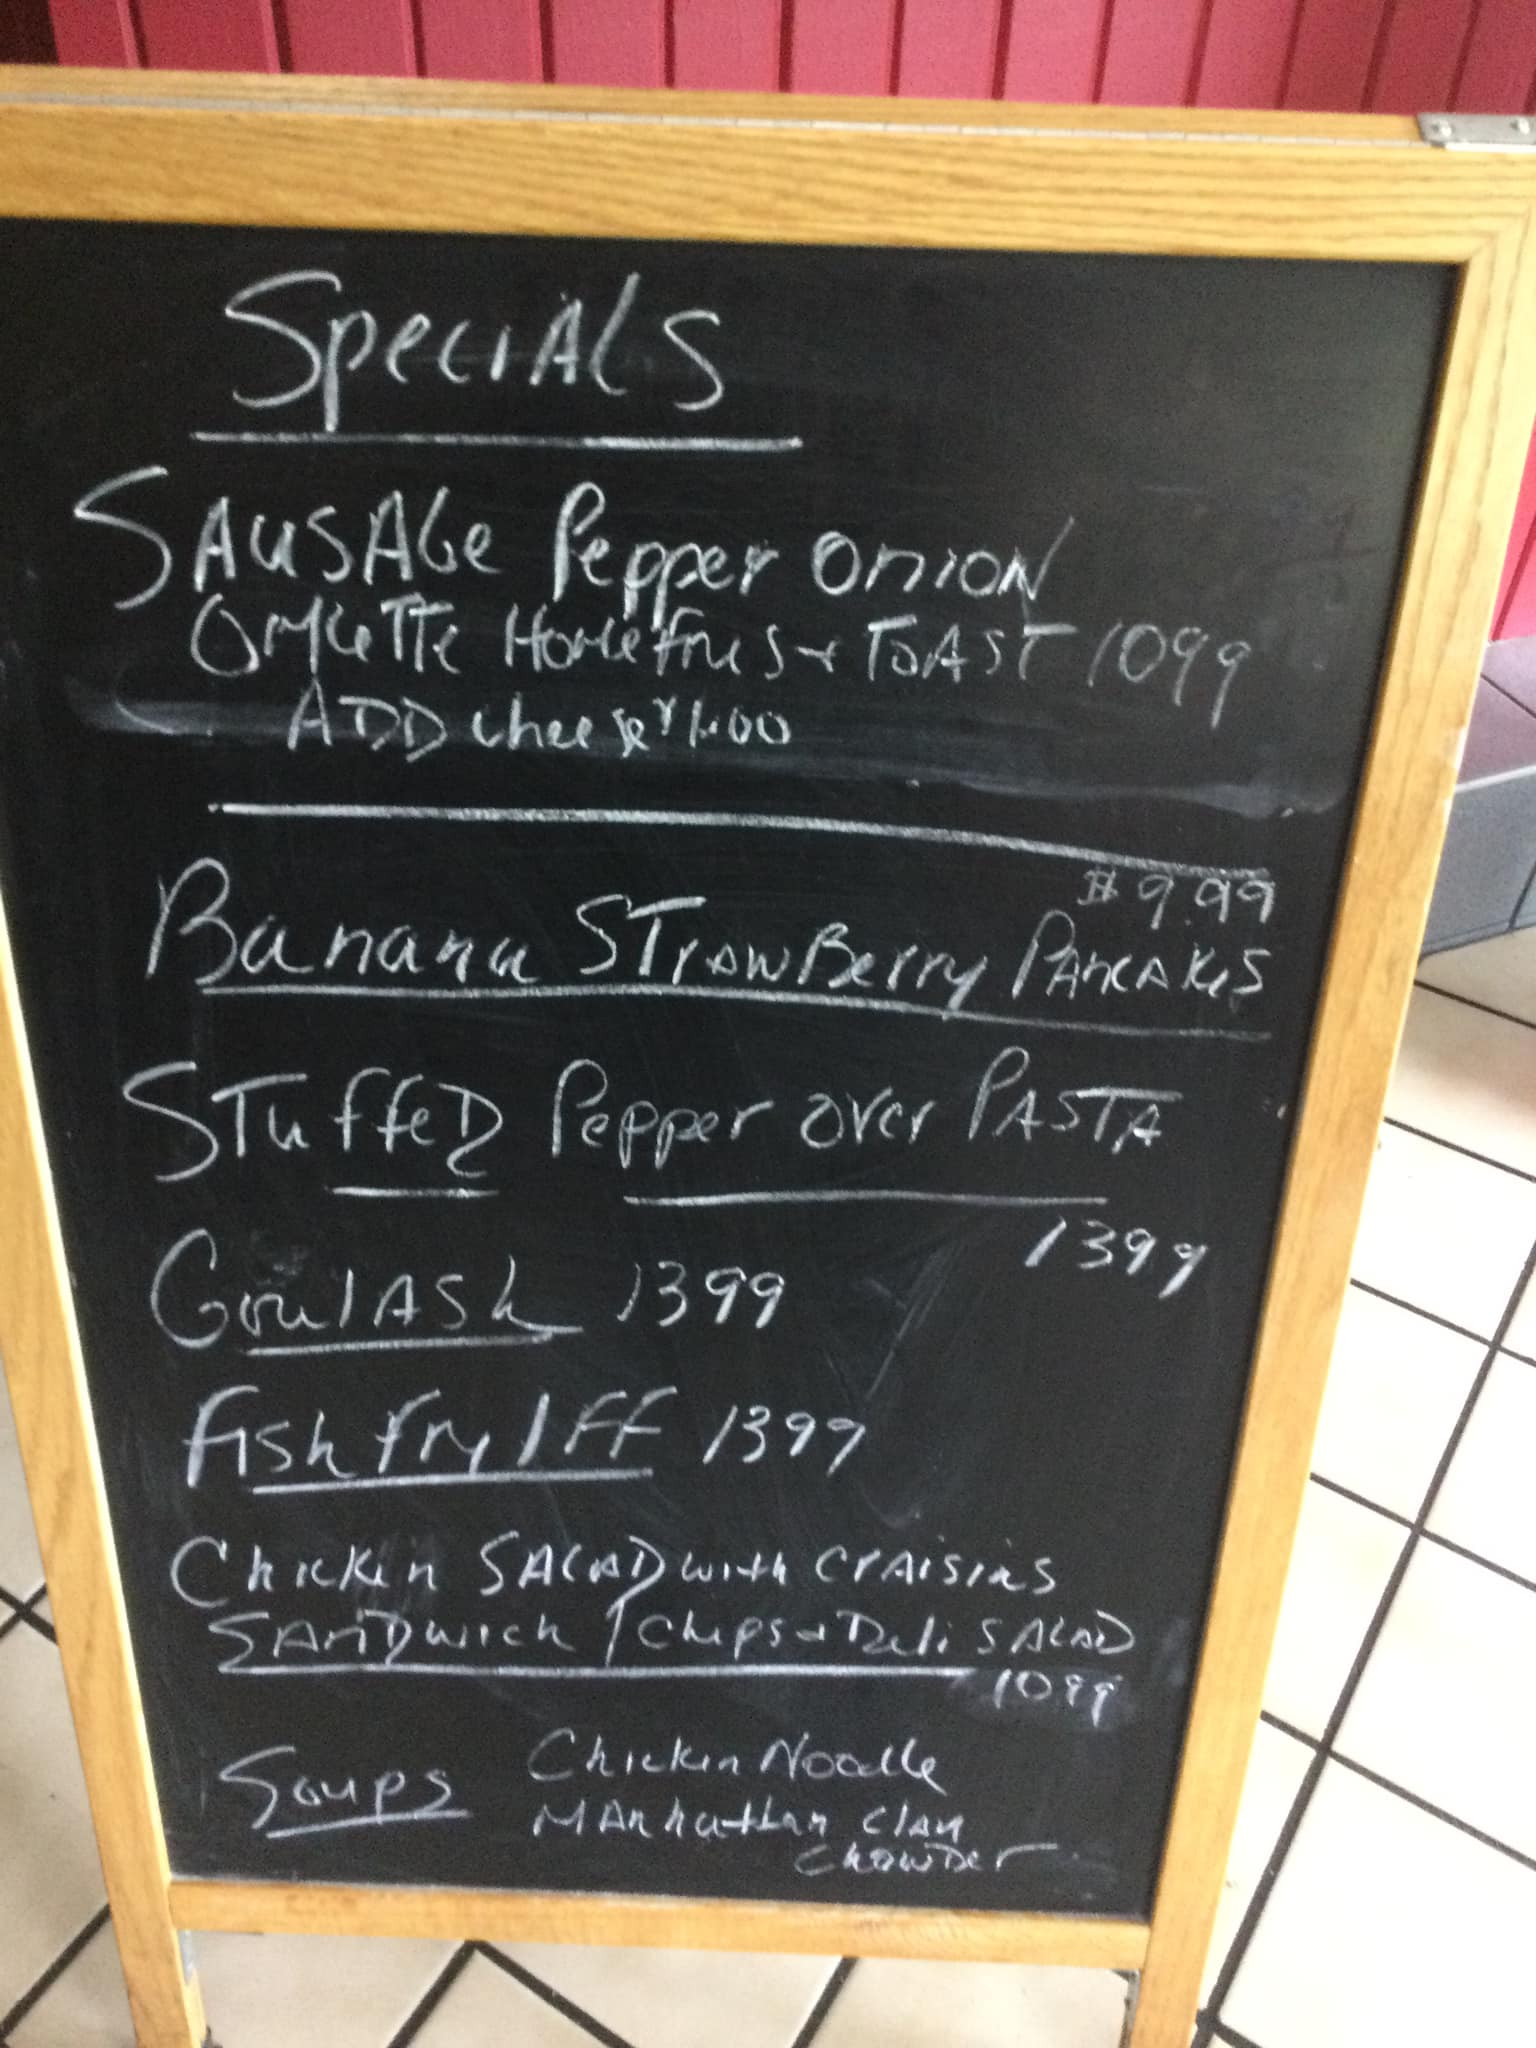 Specials
Sausage Pepper Onion
Omelette Homefries + Toast 1099
ADD cheese 1.00
$9.99
Banana Strawberry Pancakes
Stuffed Pepper over Pasta
1399
Goulash 1399
Fish Fry / FF 1399
Chicken Salad with Craisins
Sandwich / Chips + Deli Salad
1099
Soups Chicken Noodle
Manhattan Clam
Chowder